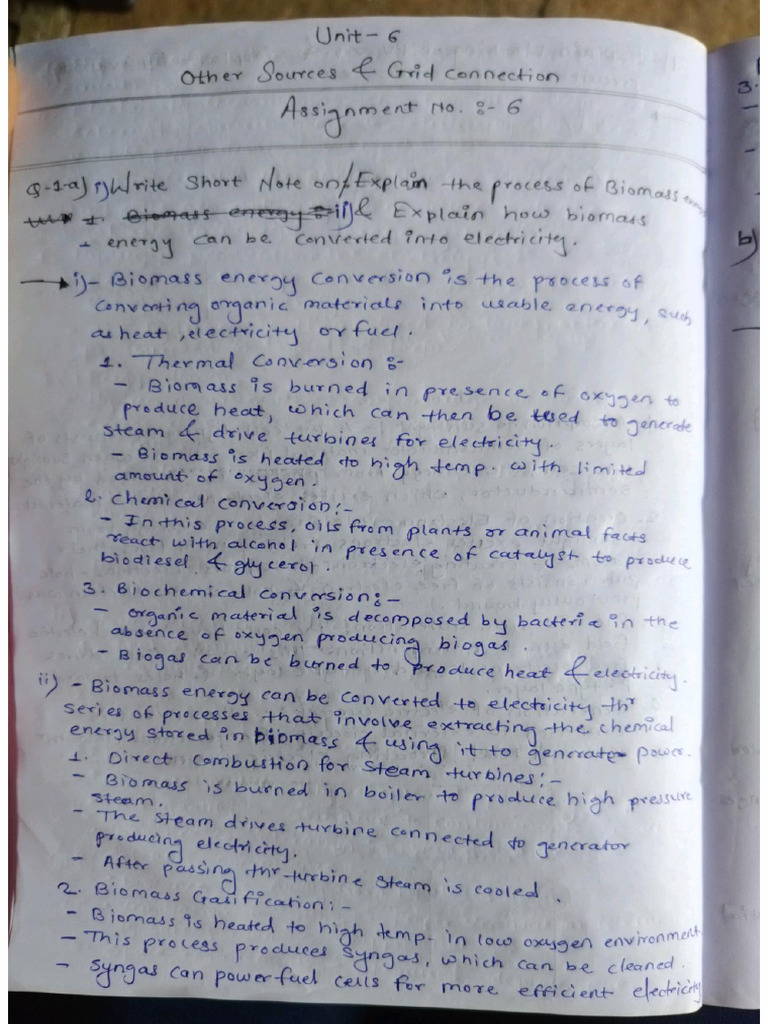 Unit - 6
Other Sources & Grid connection
Assignment No. :- 6
Q-1-a) i) Write Short Note on/Explain the process of Biomass energy
1. Biomass energy :- ii) & Explain how biomass
- energy can be converted into electricity.
→ i) - Biomass energy conversion is the process of
converting organic materials into usable energy, such
as heat, electricity or fuel.
1. Thermal Conversion :-
- Biomass is burned in presence of oxygen to
produce heat, which can then be used to generate
steam & drive turbines for electricity.
- Biomass is heated to high temp. with limited
amount of oxygen.
2. Chemical conversion :-
- In this process, oils from plants or animal facts
react with alcohol in presence of catalyst to produce
biodiesel & glycerol.
3. Biochemical conversion :-
- organic material is decomposed by bacteria in the
absence of oxygen producing biogas.
- Biogas can be burned to produce heat & electricity.
ii) - Biomass energy can be converted to electricity thr
series of processes that involve extracting the chemical
energy stored in biomass & using it to generate power.
1. Direct Combustion for Steam turbines :-
- Biomass is burned in boiler to produce high pressure
steam.
- The steam drives turbine connected to generator
producing electricity.
- After passing thr turbine steam is cooled.
2. Biomass Gasification :-
- Biomass is heated to high temp. in low oxygen environment.
- This process produces syngas, which can be cleaned.
- syngas can power fuel cells for more efficient electricity
3.
b)